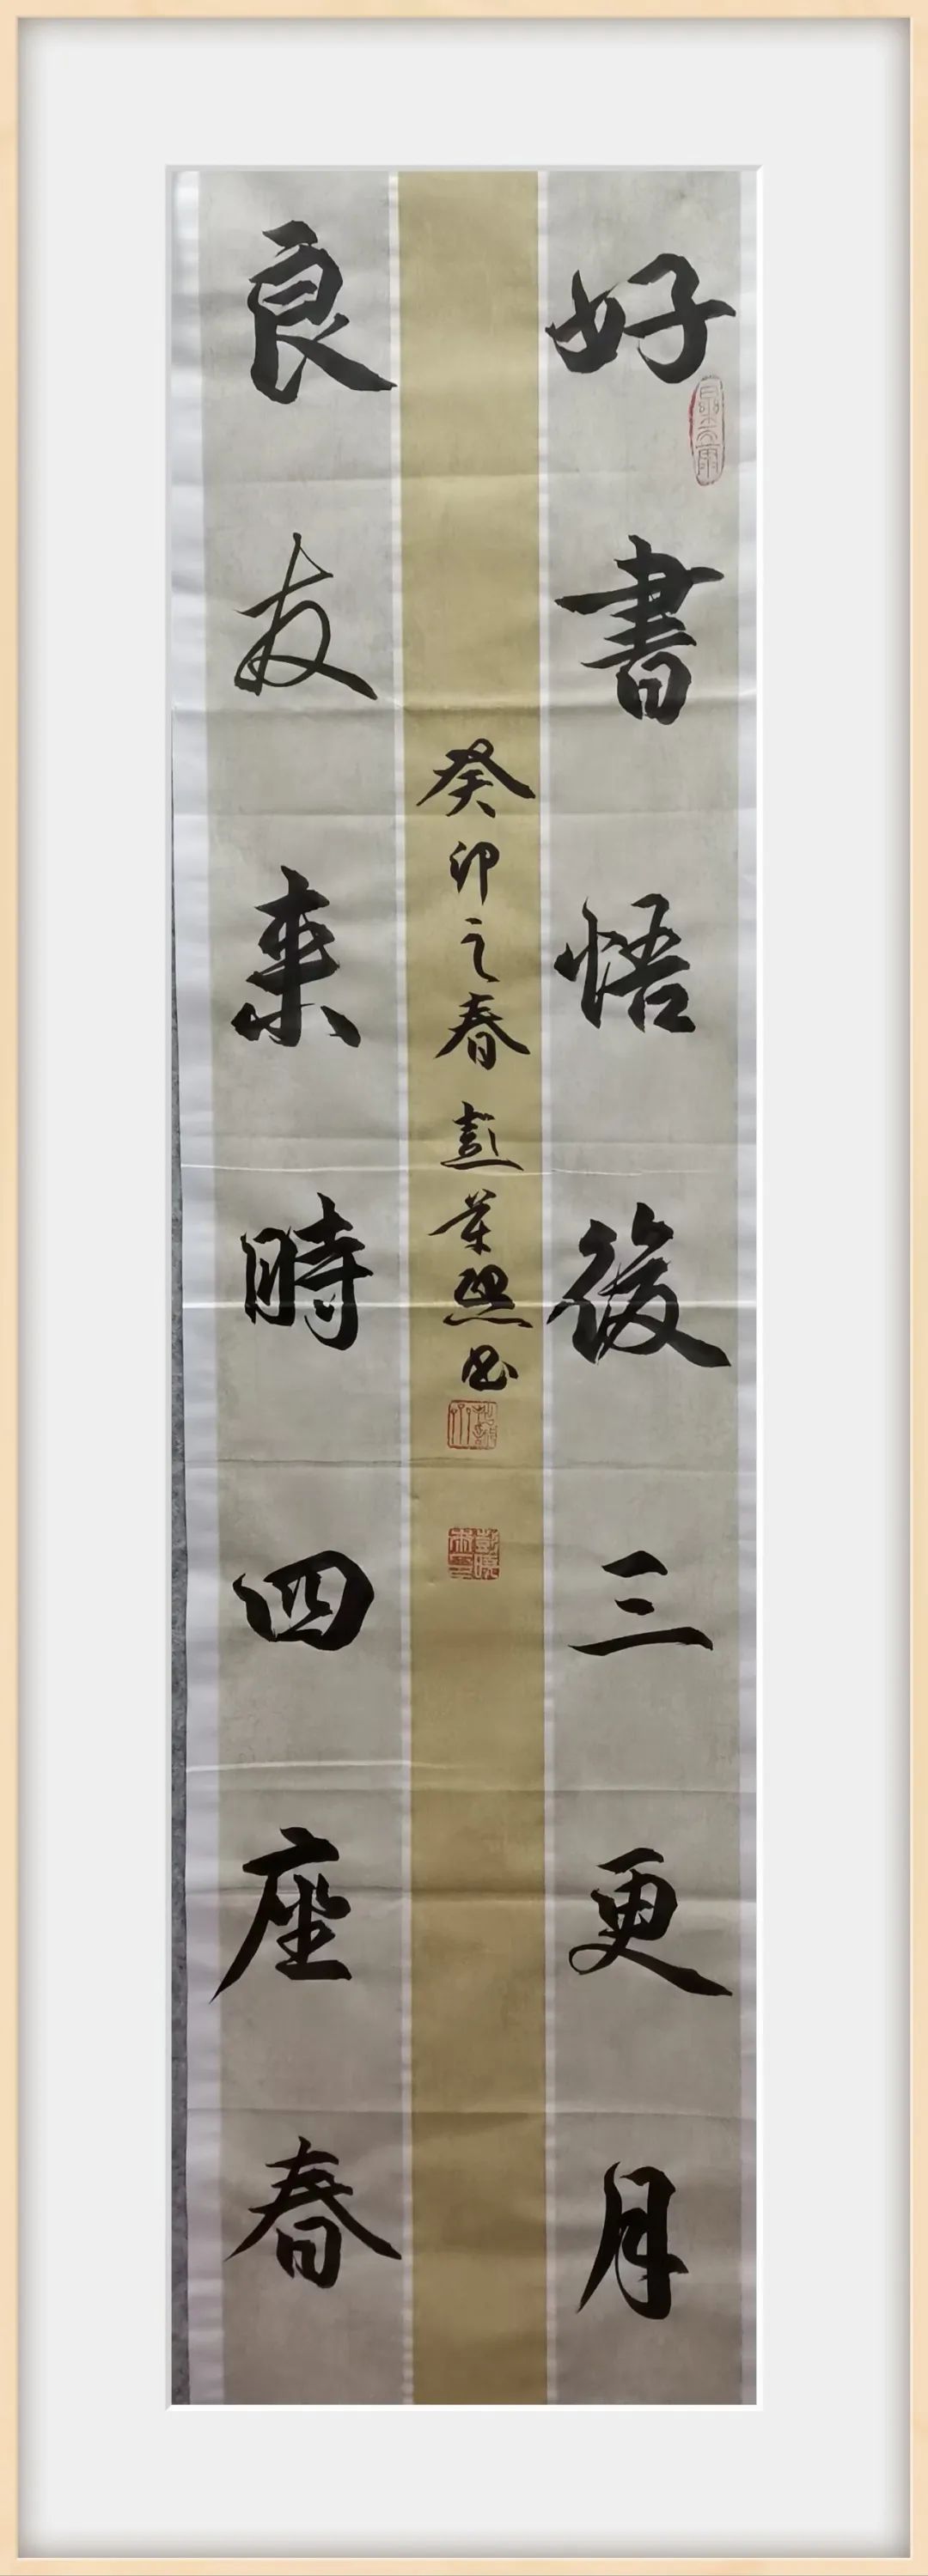 好書悟後三更月
癸卯之春 彭業照書
良友来時四座春